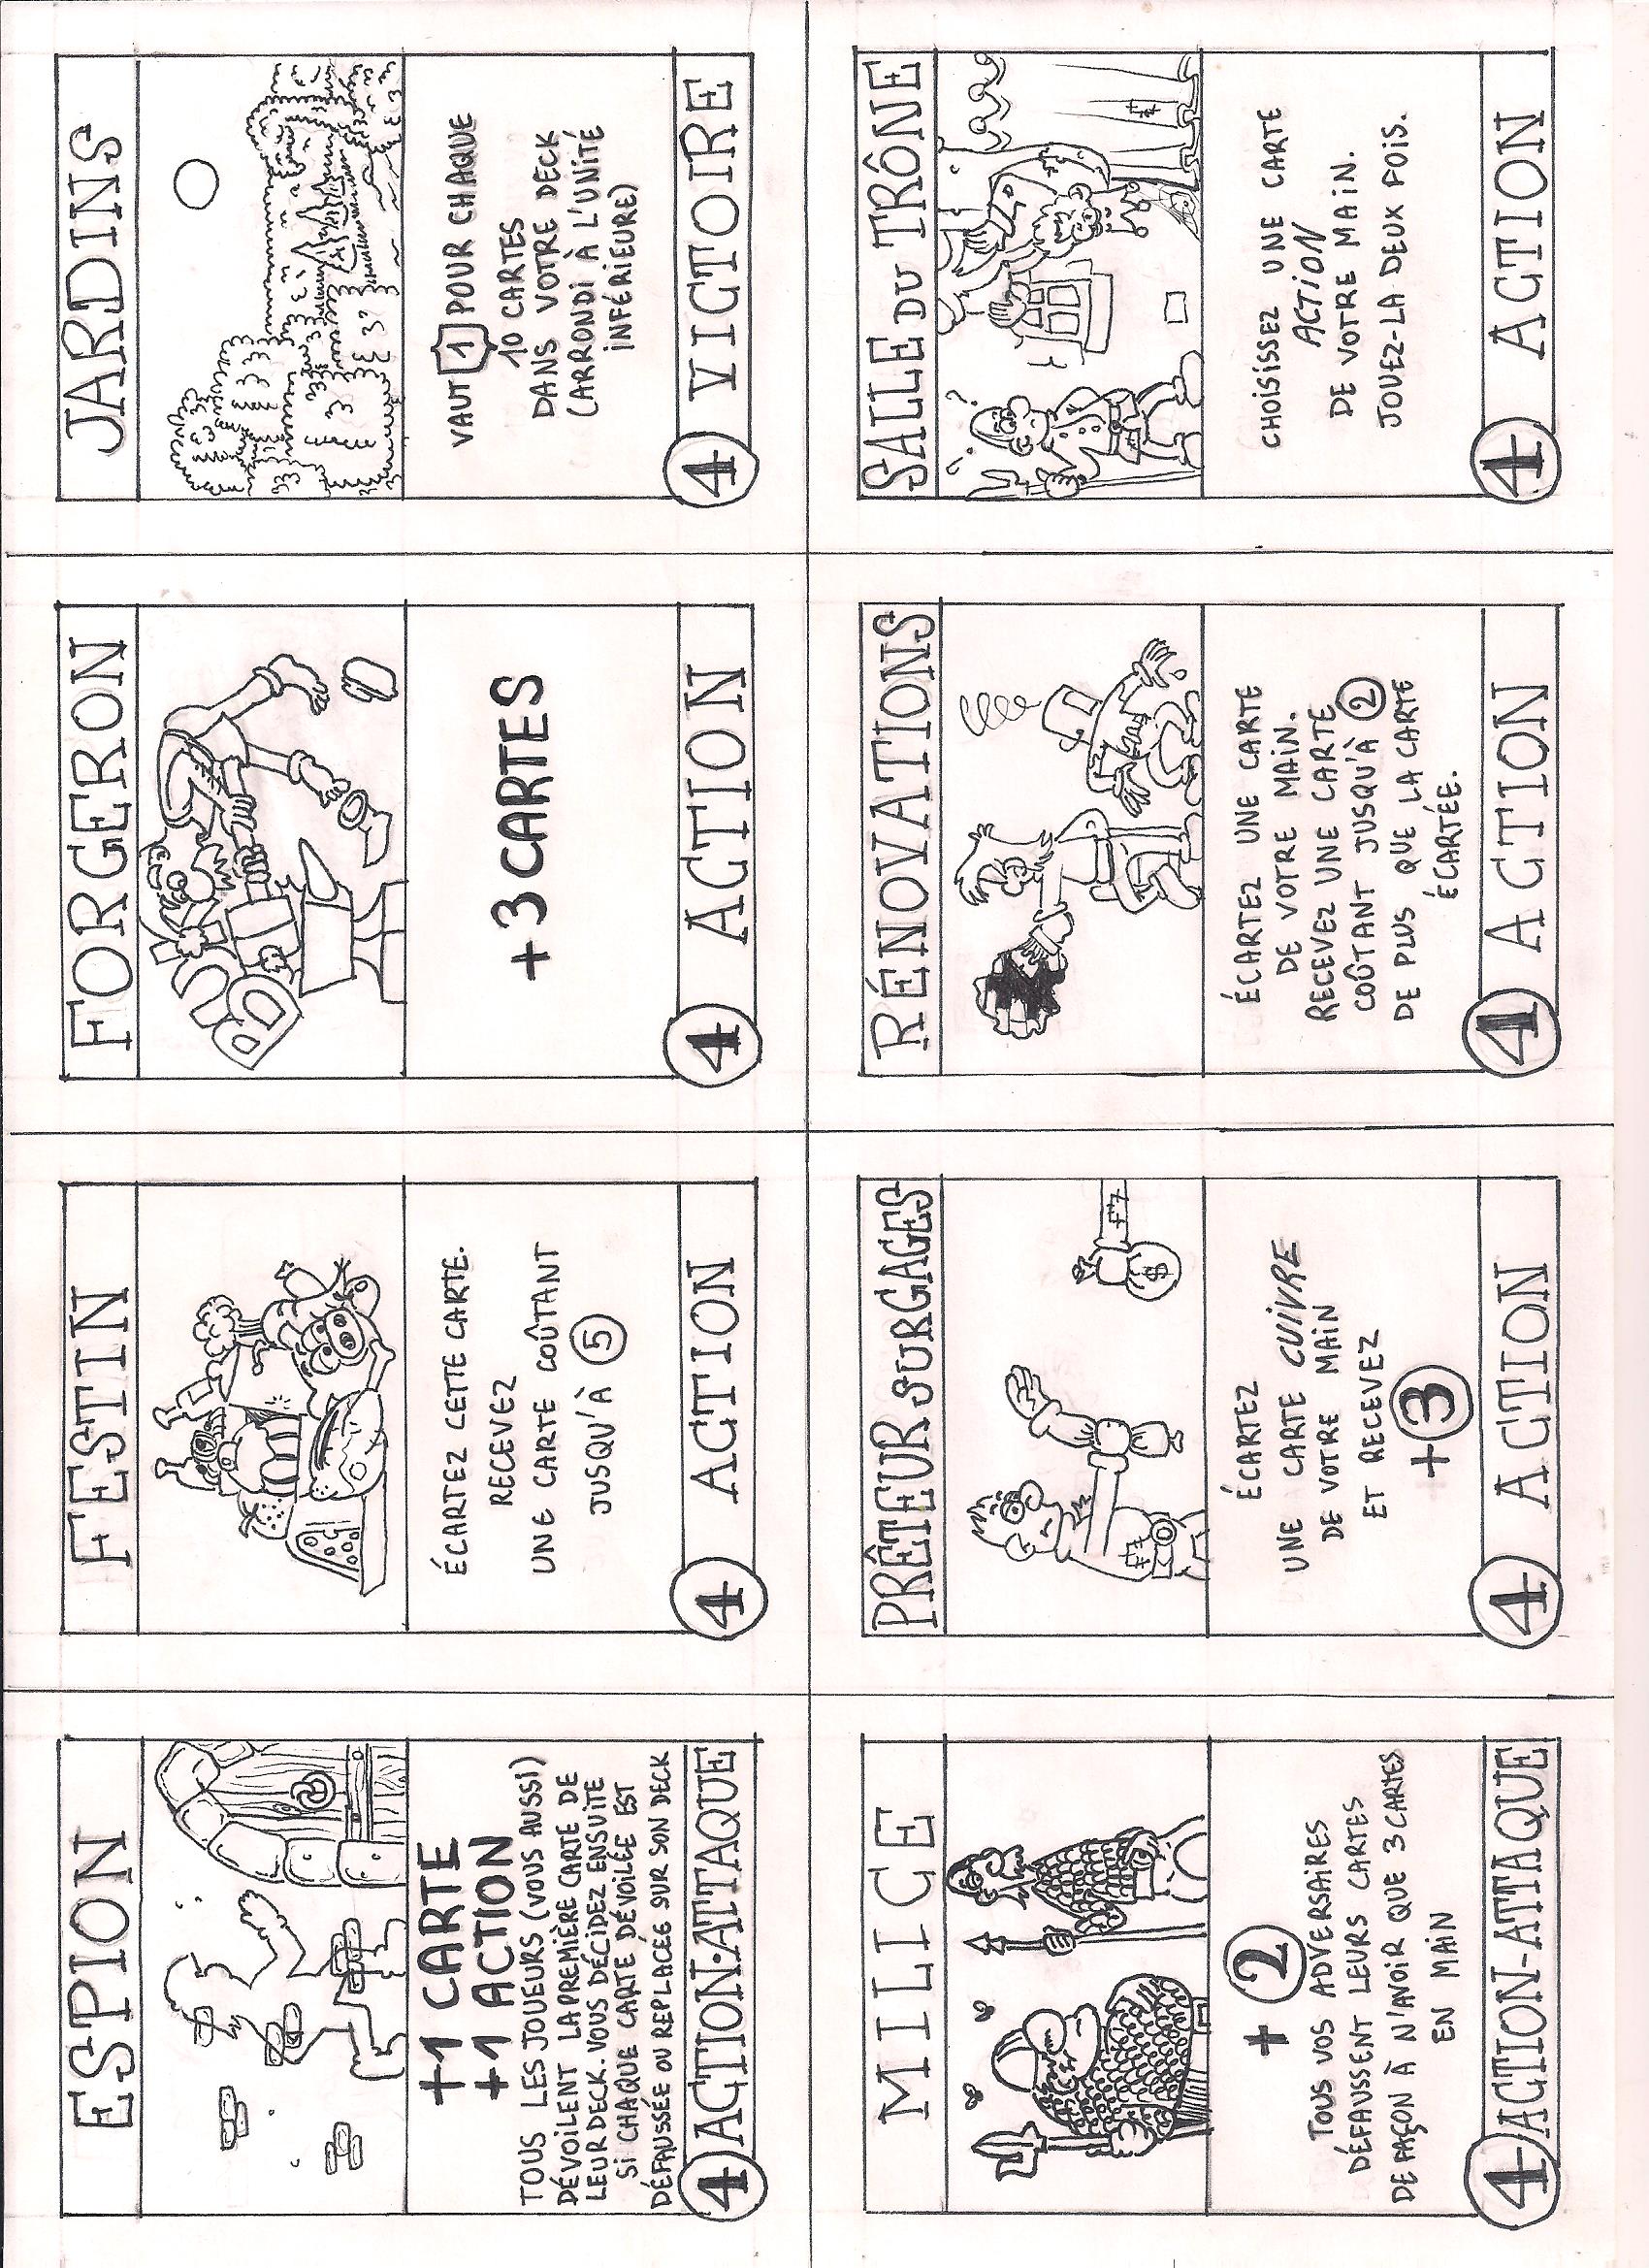 ESPION
+1 CARTE
+1 ACTION
TOUS LES JOUEURS (VOUS AUSSI)
DÉVOILENT LA PREMIÈRE CARTE DE
LEUR DECK. VOUS DÉCIDEZ ENSUITE
SI CHAQUE CARTE DÉVOILÉE EST
DÉFAUSSÉE OU REPLACÉE SUR SON DECK
4 ACTION-ATTAQUE
FESTIN
ÉCARTEZ CETTE CARTE.
RECEVEZ
UNE CARTE COÛTANT
JUSQU'À 5
4 ACTION
FORGERON
+3 CARTES
4 ACTION
JARDINS
VAUT 1 POUR CHAQUE
10 CARTES
DANS VOTRE DECK
(ARRONDI À L'UNITÉ
INFÉRIEURE)
4 VICTOIRE
MILICE
+ 2
TOUS VOS ADVERSAIRES
DÉFAUSSENT LEURS CARTES
DE FAÇON À N'AVOIR QUE 3 CARTES
EN MAIN
4 ACTION-ATTAQUE
PRÊTEUR SUR GAGES
$
ÉCARTEZ
UNE CARTE CUIVRE
DE VOTRE MAIN
ET RECEVEZ
+3
4 ACTION
RÉNOVATIONS
ÉCARTEZ UNE CARTE
DE VOTRE MAIN.
RECEVEZ UNE CARTE
COÛTANT JUSQU'À 2
DE PLUS QUE LA CARTE
ÉCARTÉE.
4 ACTION
SALLE DU TRÔNE
?
CHOISISSEZ UNE CARTE
ACTION
DE VOTRE MAIN.
JOUEZ-LA DEUX FOIS.
4 ACTION